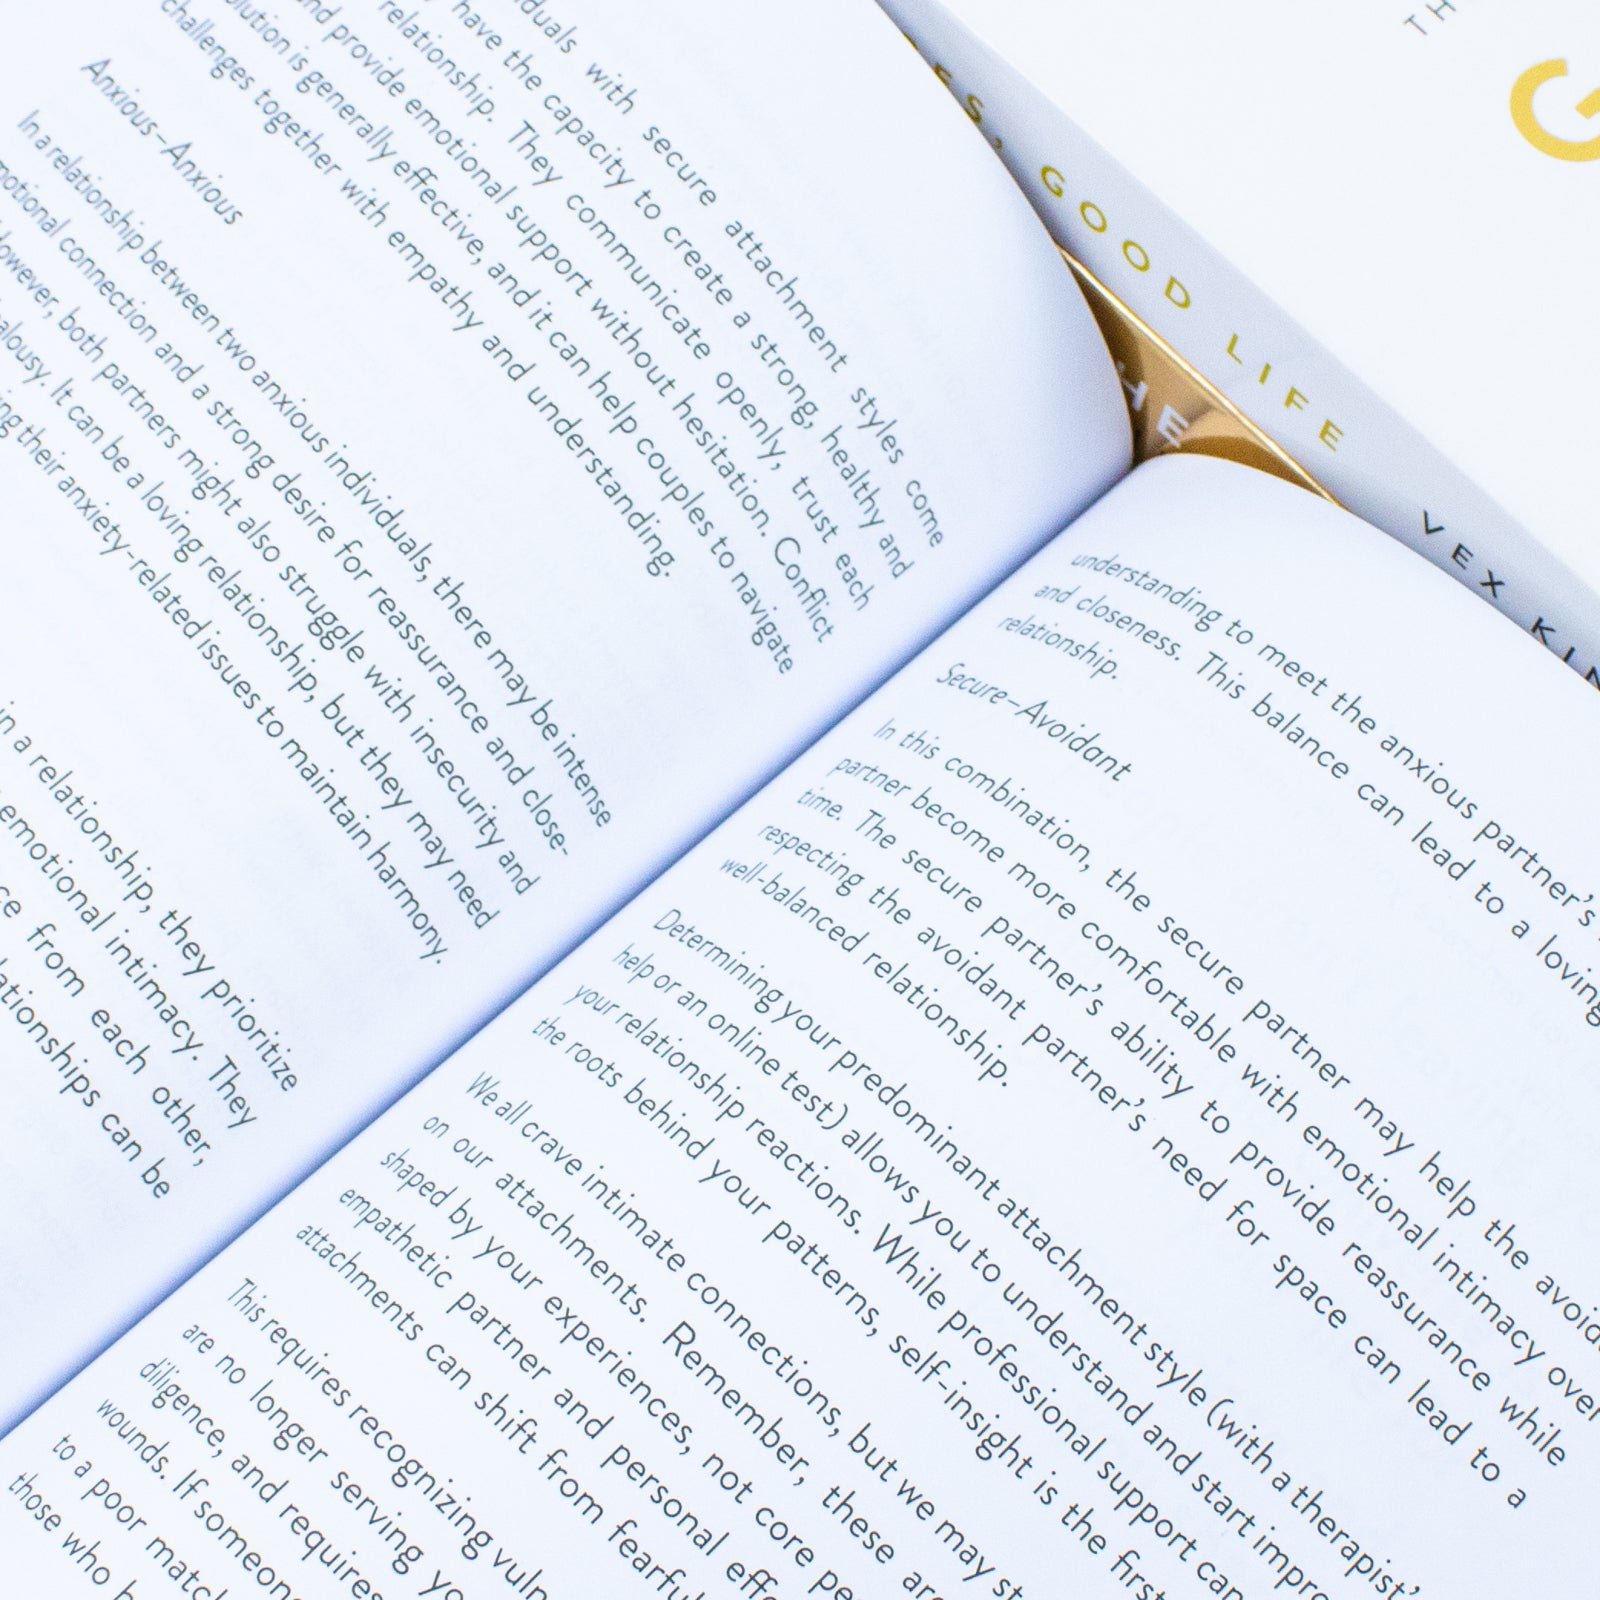 with secure attachment styles come
have the capacity to create a strong, healthy and
relationship. They communicate openly, trust each
and provide emotional support without hesitation. Conflict
is generally effective, and it can help couples to navigate
challenges together with empathy and understanding.
Anxious–Anxious
In a relationship between two anxious individuals, there may be intense
connection and a strong desire for reassurance and close-
both partners might also struggle with insecurity and
It can be a loving relationship, but they may need
their anxiety-related issues to maintain harmony.
in a relationship, they prioritize
emotional intimacy. They
from each other,
can be
understanding to meet the anxious partner's
and closeness. This balance can lead to a loving
relationship.
Secure–Avoidant
In this combination, the secure partner may help the
partner become more comfortable with emotional intimacy over
time. The secure partner's ability to provide reassurance while
respecting the avoidant partner's need for space can lead to a
well-balanced relationship.
Determining your predominant attachment style (with a therapist'
help or an online test) allows you to understand and start
your relationship reactions. While professional support can
the roots behind your patterns, self-insight is the first
We all crave intimate connections, but we may
on our attachments. Remember, these
shaped by your experiences, not core
empathetic partner and personal
attachments can shift from
This requires recognizing
are no longer serving
diligence, and requires
wounds. If
to a poor
those who
GOOD LIFE
VEX
HE
TH
G